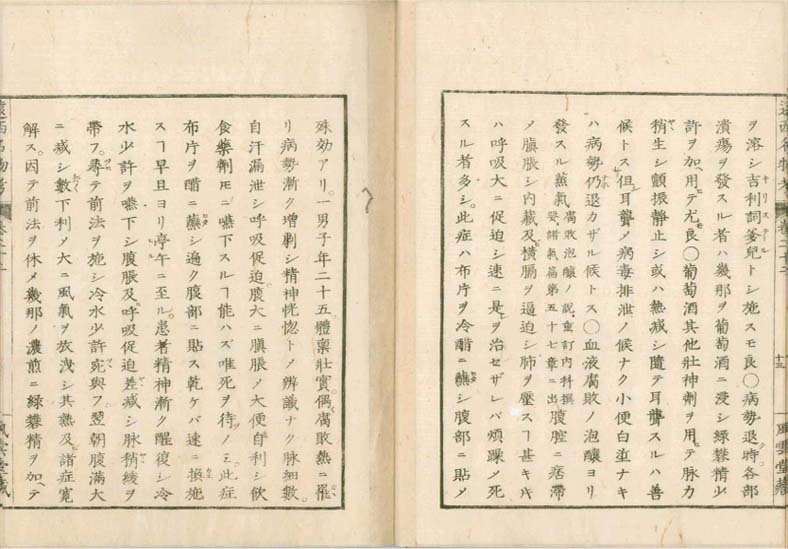 遠西名物考
風雲堂藏
ヲ溶シ吉利詞爹兒トシ施スモ良〇病勢退時各部
潰瘍ヲ發スル者ハ幾那ヲ葡萄酒ニ浸シ緑礬精少
許ヲ加用テ尤良〇葡萄酒其他壯神劑ヲ用テ脉力
稍生シ顫振静止シ或ハ熱减シ隨テ耳聾スルハ善
候トス但耳聾ノ病毒排泄ノ候ナク小便白垽ナキ
ハ病勢仍退カザル候トス〇血液腐敗ノ泡釀ヨリ
發スル蒸氣腐敗泡釀ノ説重訂内科撰要諸氣篇第五十七章ニ出腹腔ニ痞滯
乄膹脹シ内藏及横膈ヲ逼迫シ肺ヲ壓スヿ甚キ
ハ呼吸大ニ促迫シ速ニ是ヲ治セザレバ煩躁乄死
スル者多シ此症ハ布片ヲ冷醋ニ蘸シ腹部ニ貼乄
殊効アリ。一男子年二十五體稟壯實偶腐敗熱ニ罹
リ病勢漸ク增劇シ精神恍惚ト乄辨識ナク脉細數
自汗漏泄シ呼吸促迫腹大ニ膹脹乄大便自利シ飲
食藥劑モニ嚥下スルヿ能ハズ唯死ヲ待ノミ此症
布片ヲ醋ニ蘸シ遍ク腹部ニ貼ス乾ケバ速ニ換施
スヿ早旦ヨリ亭午ニ至ル。患者精神漸ク醒復シ冷
水少許ヲ嚥下シ腹脹及呼吸促迫差减シ脉稍緩ヲ
帶フ。尋テ前法ヲ施シ冷水少許宛與フ翌朝腹滿大
ニ减シ數下利乄大ニ風氣ヲ放洩シ其熱及諸症寛
解ス。因テ前法ヲ休メ幾那ノ濃煎ニ緑礬精ヲ加テ
遠西名物考
風雲堂藏